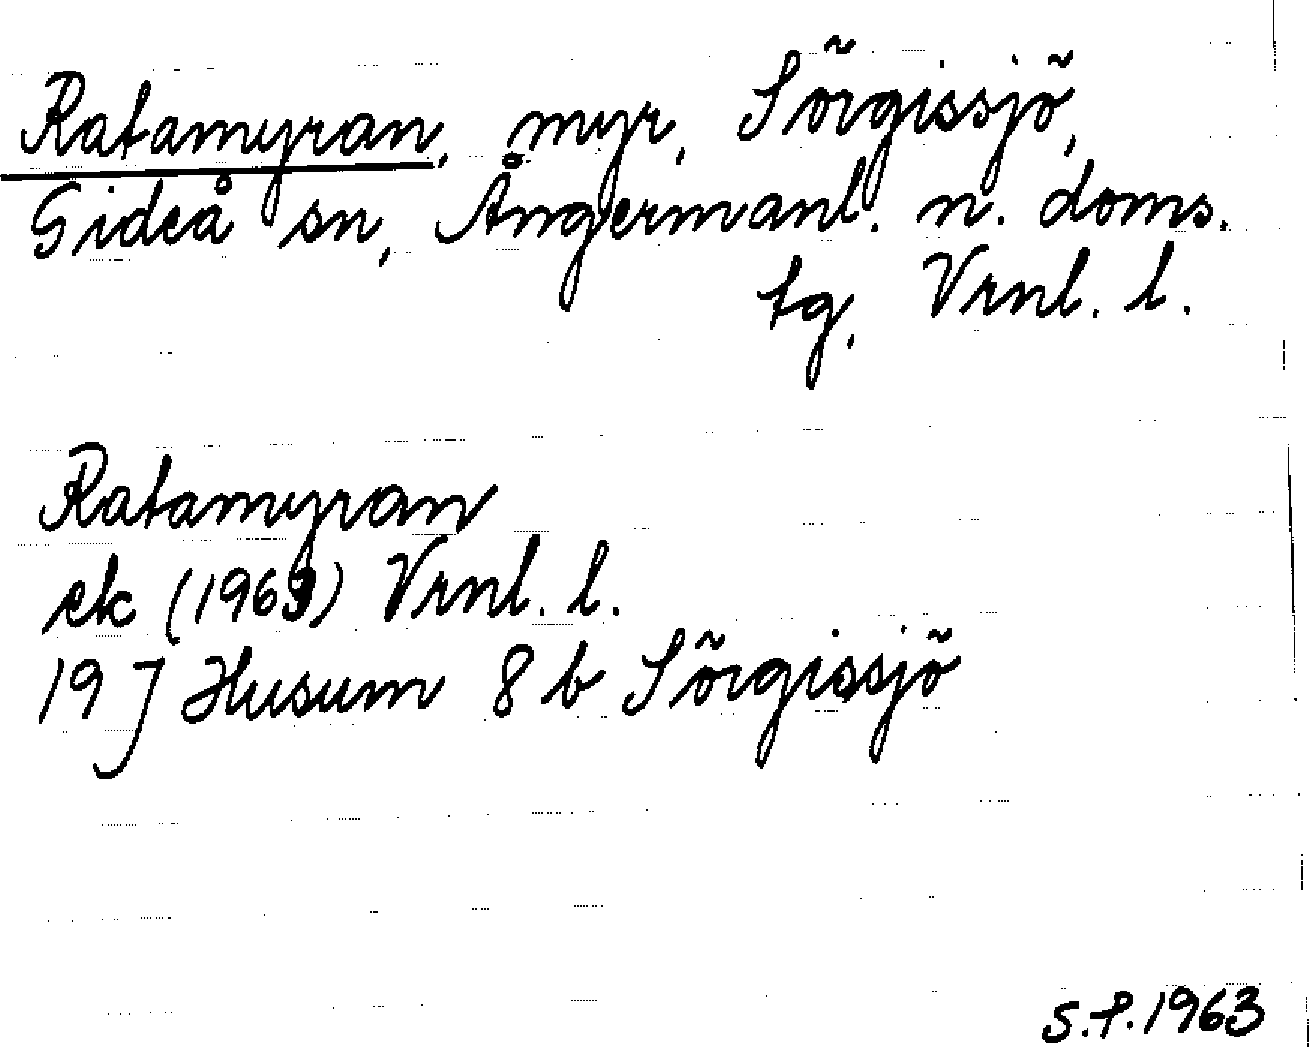 Ratamyran, myr, Sörgissjö,
Gideå sn, Ångermanl. n. doms.
tg, Vrnl. l.
Ratamyran
ek (1963) Vrnl. l.
19 J Husum 8 b Sörgissjö
S.P. 1963